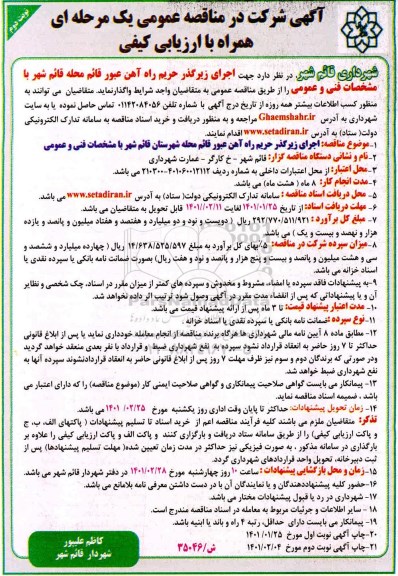 نوبت دوم
آگهی شرکت در مناقصه عمومی یک مرحله ای
همراه با ارزیابی کیفی
شهرداری قائم شهر در نظر دارد جهت اجرای زیرگذر حریم راه آهن عبور قائم محله قائم شهر با
مشخصات فنی و عمومی را از طریق مناقصه عمومی به متقاضیان واجد شرایط واگذارنماید. متقاضیان می توانند به
منظور کسب اطلاعات بیشتر همه روزه از تاریخ درج آگهی با شماره تلفن ۰۱۱۴۲۰۸۴۰۵۶ تماس حاصل نموده یا به سایت
شهرداری به آدرس Ghaemshahr.ir مراجعه و به منظور دریافت و خرید اسناد مناقصه به سامانه تدارک الکترونیکی
دولت( ستاد) به آدرس www.setadiran.ir اقدام نمایند.
۱-موضوع مناقصه: اجرای زیرگذر حریم راه آهن عبور قائم محله شهرستان قائم شهر با مشخصات فنی و عمومی
۲- نام و نشانی دستگاه مناقصه گزار: قائم شهر - خ کارگر - عمارت شهرداری
۳-محل اعتبار: از محل اعتبارات داخلی به شماره ردیف
۴-مدت انجام کار: ۸ ماه ( هشت ماه) می باشد.
۵-محل دریافت اسناد مناقصه: سامانه تدارک الکترونیکی دولت( ستاد) به آدرس www.setadiran.ir می باشد.
۶- مهلت دریافت اسناد: از تاریخ ۱۴۰۱/۰۱/۲۵ لغایت ۱۴۰۱/۰۲/۱۱ قابل تحویل به متقاضیان می باشد.
۷- مبلغ کل برآورد : ۲۹۲/۷۷۰/۵۱۱/۹۲۱ ریال ( دویست و نود و دو میلیارد و هفتصد و هفتاد میلیون و پانصد و یازده
هزار و نهصد و بیست و یک ) می باشد.
۸-میزان سپرده شرکت در مناقصه: ۵٪بهای کل برآورد به مبلغ ۱۴/۶۳۸/۵۲۵/۵۹۷ ریال ( چهارده میلیارد و ششصد و
سی و هشت میلیون و پانصد و بیست و پنج هزار و پانصد و نود و هفت ریال) بصورت ضمانت نامه بانکی یا سپرده نقدی یا
اسناد خزانه می باشد.
۹-به پیشنهادات فاقد سپرده یا امضاء، مشروط و مخدوش و سپرده های کمتر از میزان مقرر در اسناد، چک شخصی و نظایر
آن و یا پیشنهاداتی که پس از انقضاء مدت مقرر در آگهی وصول شود ترتیب اثر داده نخواهد شد.
۱۰- مدت اعتبار پیشنهاد قیمت: تا ۳ ماه پس از ارائه پیشنهاد قیمت می باشد.
۱۱- نوع سپرده :ضمانت نامه بانکی یا سپرده نقدی یا اسناد خزانه .
۱۲-مطابق ماده ۸ آیین نامه مالی شهرداری ها هرگاه برنده مناقصه از انجام معامله خودداری نماید یا پس از ابلاغ قانونی
حداکثر تا ۷ روز حاضر به انعقاد قرارداد نشود سپرده به نفع شهرداری ضبط و قرارداد با نفر بعدی منعقد خواهد گردید
ودر صورتی که برندگان دوم و سوم نیز ظرف مهلت ۷ روز پس از ابلاغ قانونی حاضر به انعقاد قراردادنشوند سپرده آنها به
نفع شهرداری ضبط خواهد شد.
۱۳- پیمانکار می بایست گواهی صلاحیت پیمانکاری و گواهی صلاحیت ایمنی کار (موضوع مناقصه) را که دارای اعتبار می
باشد ، ضمیمه اسناد مناقصه نماید.
۱۴- زمان تحویل پیشنهادات: حداکثر تا پایان وقت اداری روز یکشنبه مورخ ۱۴۰۱/۰۲/۲۵ می باشد.
تذکر: متقاضیان ملزم می باشند کلیه فرآیند مناقصه اعم از خرید اسناد تا تسلیم پیشنهادات ( پاکتهای الف، ب، ج
و پاکت ارزیابی کیفی) را از طریق سامانه ستاد دریافت و بارگزاری کنند و پاکت الف و پاکت ارزیابی کیفی را علاوه بر
بارگذاری در سامانه مذکور ، به صورت فیزیکی نیز حداکثر در مدت زمان تعیین شده( مهلت تسلیم پیشنهادها) پس از
ثبت دبیرخانه، تحویل واحد قراردادهای شهرداری گردد.
۱۵-زمان و محل بازگشایی پیشنهادات : ساعت ۱۰ روز چهارشنبه مورخ ۱۴۰۱/۰۲/۲۸ در دفتر شهردار قائم شهر می باشد.
۱۶-حضور کلیه پیشنهاددهندگان و یا نمایندگان آن با در دست داشتن معرفی نامه بلامانع می باشد.
۱۷- شهرداری در رد یا قبول پیشنهادات مختار می باشد.
۱۸- سایر اطلاعات و جزئیات مربوط به معامله در اسناد مناقصه مندرج است.
۱۹- پیمانکار می بایست دارای حداقل، رتبه ۴ راه و باند یا ابنیه باشد.
۲۰-چاپ آگهی نوبت اول مورخ ۱۴۰۱/۰۱/۲۵
۲۱-چاپ آگهی نوبت دوم مورخ ۱۴۰۱/۰۲/۰۴
ش/۳۵۰۴۶
کاظم علیپور
شهردار قائم شهر